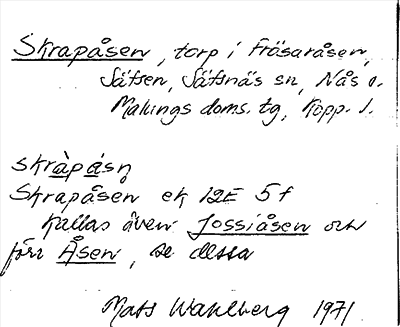 Skrapåsen, torp i Fräsaråsen,
Säfsen, Säfsnäs sn, Nås o.
Malungs doms. tg, Kopp. l.
skràpásn̥
Skrapåsen ek 12E 5f
Kallas även Jossiåsen och
förr Åsen, se dessa
Mats Wahlberg 1971